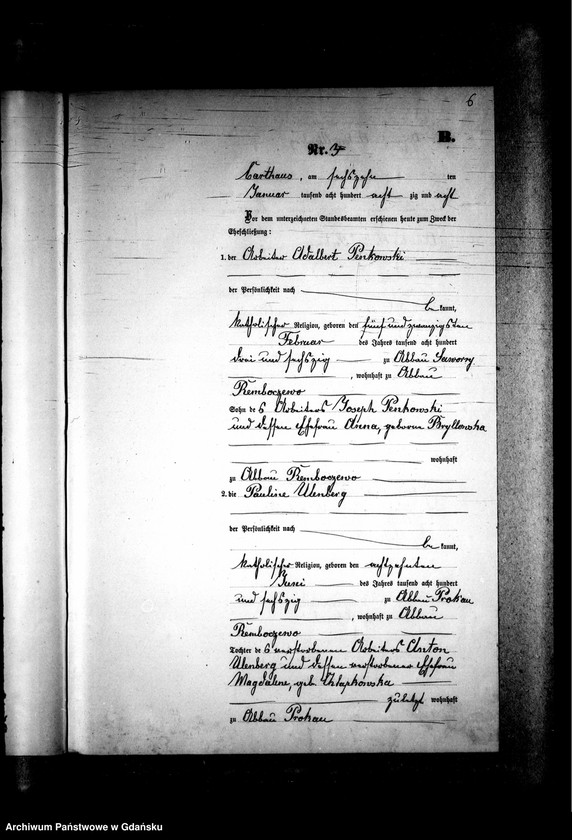 6
B.
Nr.
Carthaus, am sechszehn ten
Januar tausend acht hundert acht zig und acht
Vor dem unterzeichneten Standesbeamten erschienen heute zum Zweck der
Eheschließung:
1. der Arbeiter Adalbert Penkowski
der Persönlichkeit nach
be kannt,
katholischer Religion, geboren den fünf und zwanzigsten
Februar des Jahres tausend acht hundert
drei und sechszig zu Abbau Saworry
, wohnhaft zu Abbau
Remboczewo
Sohn des Arbeiters Joseph Penkowski
und dessen Ehefrau Anna, geborne Bryllowska
wohnhaft
zu Abbau Remboczewo
2. die Pauline Ulenberg
der Persönlichkeit nach
be kannt,
katholischer Religion, geboren den achtzehnten
Juni des Jahres tausend acht hundert
und sechszig zu Abbau Prokau
, wohnhaft zu Abbau
Remboczewo
Tochter des verstorbenen Arbeiters Anton
Ulenberg und dessen verstorbener Ehefrau
Magdalene, geb.
zuletzt wohnhaft
zu Abbau Prokau
Archiwum Państwowe w Gdańsku